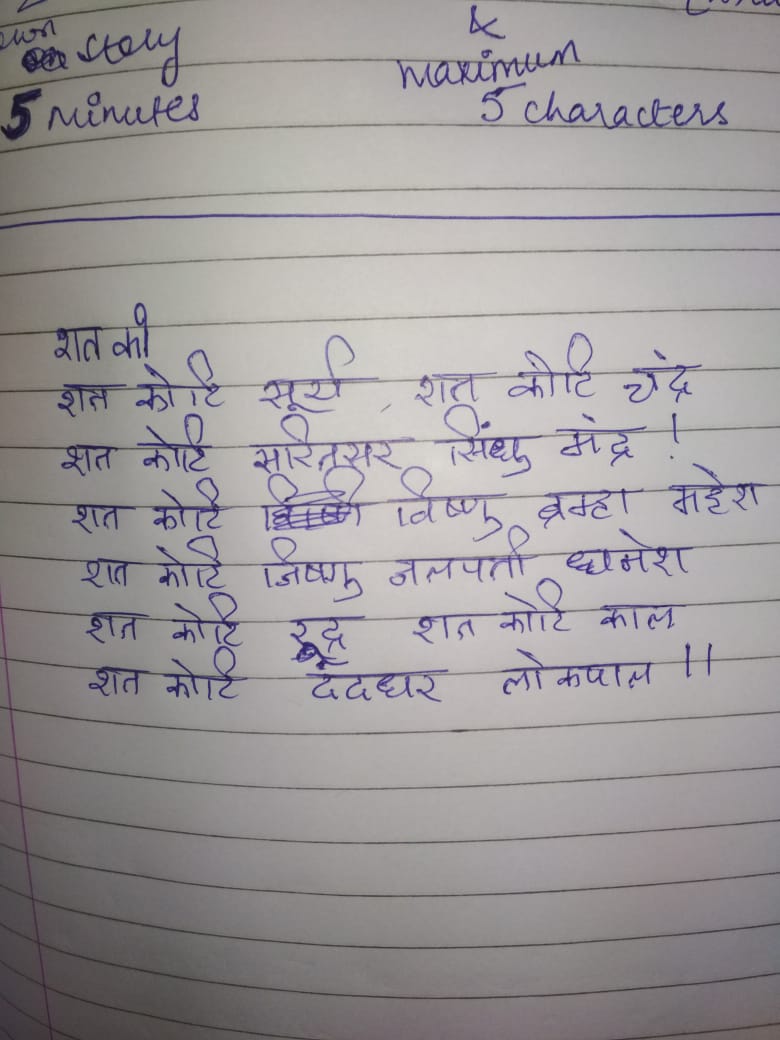 own story &
maximum
5 minutes 5 characters
शत को
शत कोटि सूर्य, शत कोटि चंद्र
शत कोटि सरितसर सिंधु मंद्र !
शत कोटि विष्णु ब्रम्हा महेश
शत कोटि जिष्णु जलपती धनेश
शत कोटि रुद्र शत कोटि काल
शत कोटि दंदधर लोकपाल ||